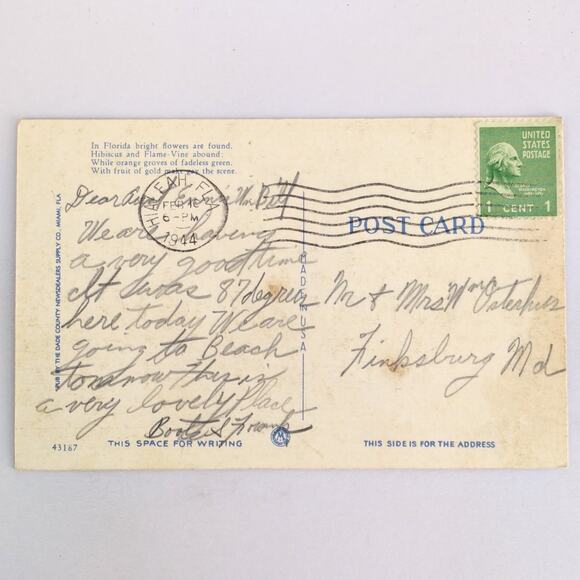 In Florida bright flowers are found.
Hibiscus and Flame-Vine abound;
While orange groves of fadeless green.
With fruit of gold make gay the scene.
HIALEAH, FLA.
FEB 16
6-PM
1944
UNITED
STATES
POSTAGE
WASHINGTON
1 CENT 1
POST CARD
Dear Wm Bill
We are having
a very good time
It was 87 degrees
here today We are
going to Beach
tomorrow This is
a very lovely Place
Boots &
Mr & Mrs Wm
Finksburg Md
PUB BY THE DADE COUNTY NEWSDEALERS SUPPLY CO., MIAMI, FLA
MADE IN USA
43187
THIS SPACE FOR WRITING
THIS SIDE IS FOR THE ADDRESS